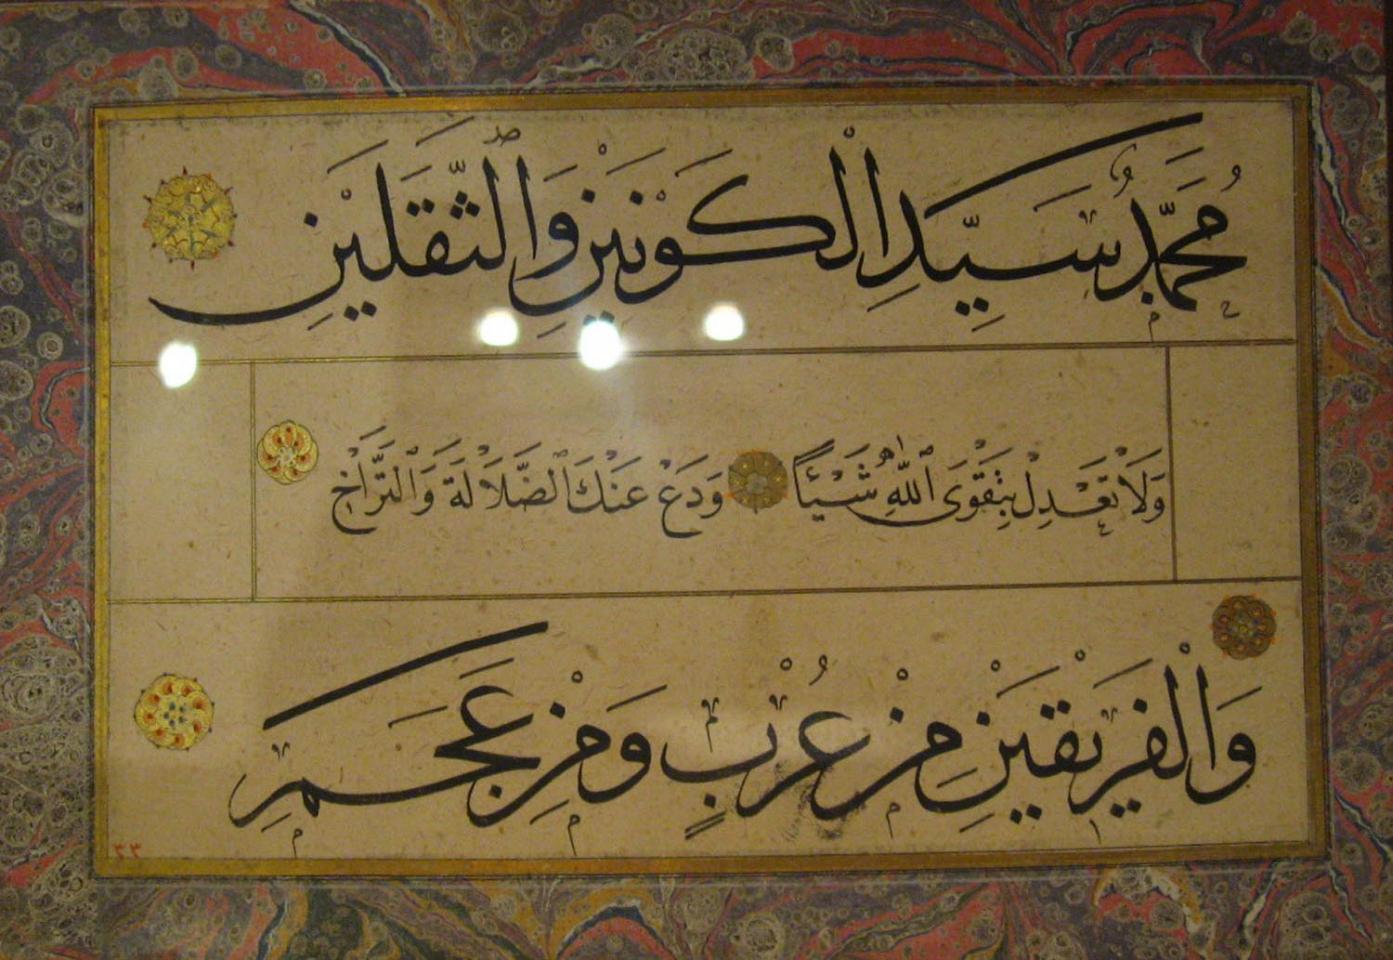 مُحَمَّدٌ سَيِّدِ الْكَوْنَيْنِ وَالثَّقَلَيْنِ
وَلَا تَعْدِلْ بِتَقْوَى اللّٰهِ شَيْئًا وَدَعْ عَنْكَ الضَّلَالَةَ وَالتَّرَاخِ
وَالْفَرِيقَيْنِ مِنْ عُرْبٍ وَمِنْ عَجَمِ
٣٣